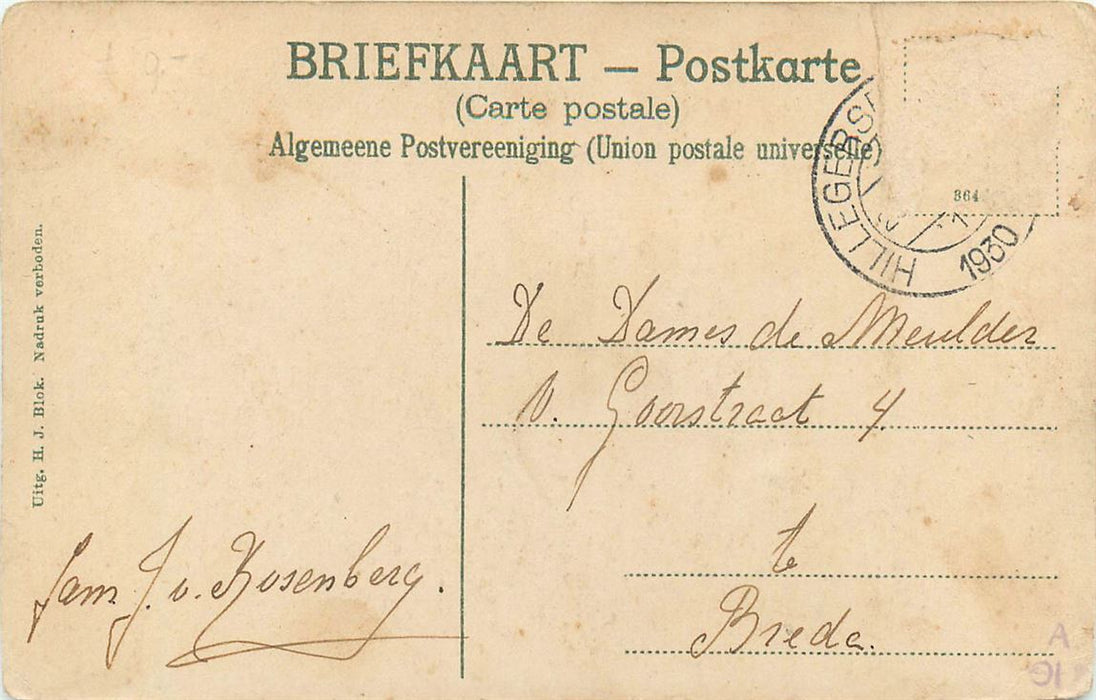 BRIEFKAART — Postkarte
(Carte postale)
Algemeene Postvereeniging (Union postale universelle)
HILLEGERS
1930
364
Uitg. H. J. Blok. Nadruk verboden.
De Dames de Meulder
v. Goorstraat 4
te
Breda.
fam. J. v. Rosenberg.
A